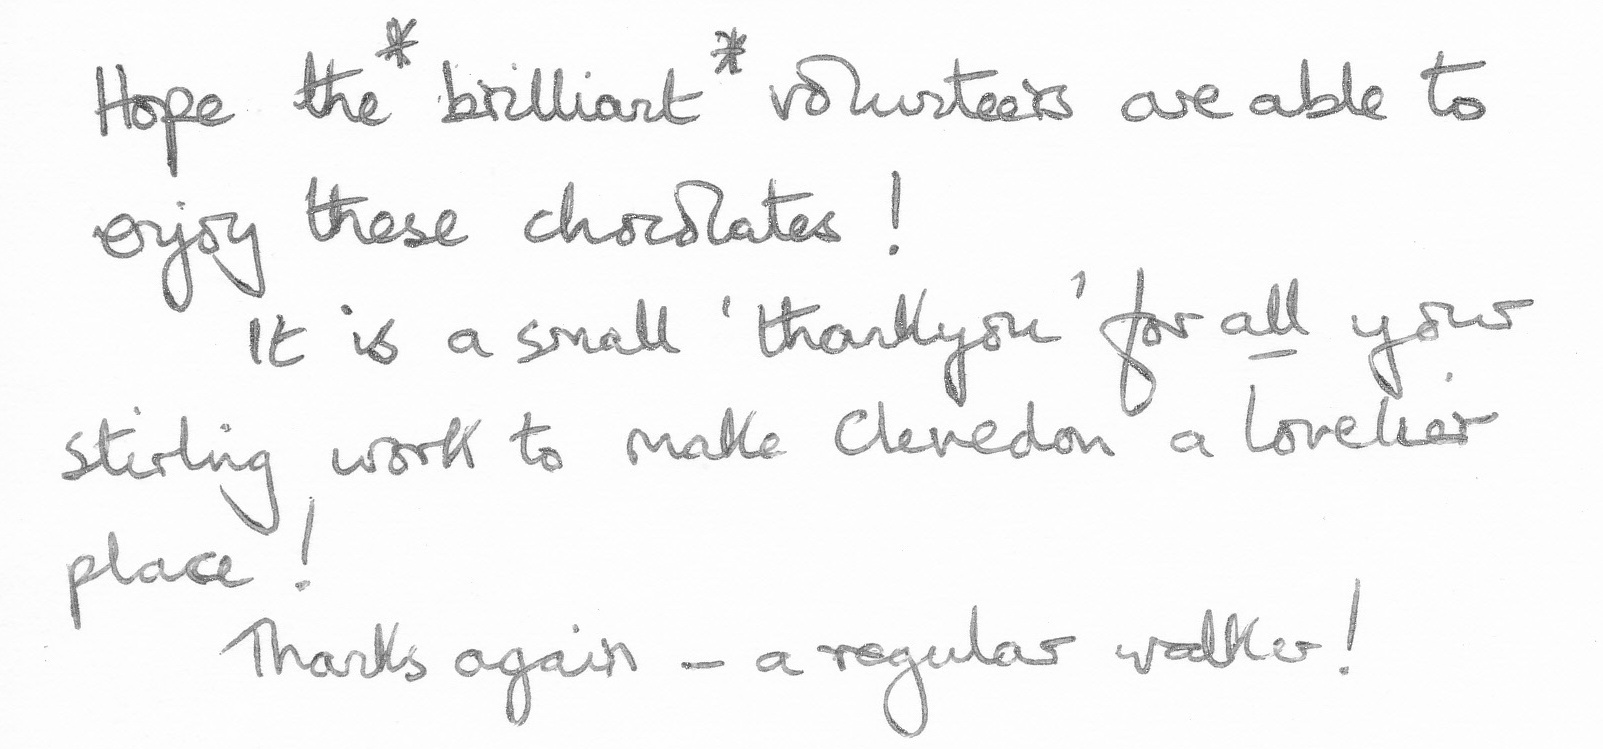 Hope the *brilliant* volunteers are able to
enjoy these chocolates!
It is a small 'thankyou' for all your
stirling work to make Clevedon a lovelier
place!
Thanks again - a regular walker!